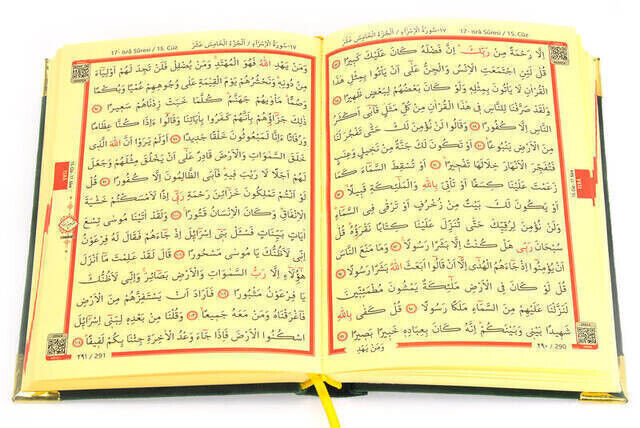 ١٧-سورة الإسراء / الجزء الخامس عشر
17- isrâ Sûresi / 15. Cüz
اِلَّا رَحْمَةً مِنْ رَبِّكَ اِنَّ فَضْلَهُ كَانَ عَلَيْكَ كَبِيرًا
قُلْ لَئِنِ اجْتَمَعَتِ الْاِنْسُ وَالْجِنُّ عَلٰٓى اَنْ يَأْتُوا بِمِثْلِ هٰذَا
الْقُرْاٰنِ لَا يَأْتُونَ بِمِثْلِهِ وَلَوْ كَانَ بَعْضُهُمْ لِبَعْضٍ ظَهِيرًا
وَلَقَدْ صَرَّفْنَا لِلنَّاسِ فِي هٰذَا الْقُرْاٰنِ مِنْ كُلِّ مَثَلٍ فَاَبٰٓى اَكْثَرُ
النَّاسِ اِلَّا كُفُورًا وَقَالُوا لَنْ نُؤْمِنَ لَكَ حَتّٰى تَفْجُرَ لَنَا
مِنَ الْاَرْضِ يَنْبُوعًا اَوْ تَكُونَ لَكَ جَنَّةٌ مِنْ نَخِيلٍ وَعِنَبٍ
فَتُفَجِّرَ الْاَنْهَارَ خِلَالَهَا تَفْجِيرًا اَوْ تُسْقِطَ السَّمَٓاءَ كَمَا
زَعَمْتَ عَلَيْنَا كِسَفًا اَوْ تَأْتِيَ بِاللّٰهِ وَالْمَلٰٓئِكَةِ قَبِيلًا
اَوْ يَكُونَ لَكَ بَيْتٌ مِنْ زُخْرُفٍ اَوْ تَرْقٰى فِي السَّمَٓاءِ
وَلَنْ نُؤْمِنَ لِرُقِيِّكَ حَتّٰى تُنَزِّلَ عَلَيْنَا كِتَابًا نَقْرَؤُهُ قُلْ
سُبْحَانَ رَبِّي هَلْ كُنْتُ اِلَّا بَشَرًا رَسُولًا وَمَا مَنَعَ النَّاسَ
اَنْ يُؤْمِنُوا اِذْ جَٓاءَهُمُ الْهُدٰٓى اِلَّٓا اَنْ قَالُوا اَبَعَثَ اللّٰهُ بَشَرًا رَسُولًا
قُلْ لَوْ كَانَ فِي الْاَرْضِ مَلٰٓئِكَةٌ يَمْشُونَ مُطْمَئِنِّينَ
لَنَزَّلْنَا عَلَيْهِمْ مِنَ السَّمَٓاءِ مَلَكًا رَسُولًا قُلْ كَفٰى بِاللّٰهِ
شَهِيدًا بَيْنِي وَبَيْنَكُمْ اِنَّهُ كَانَ بِعِبَادِهِ خَبِيرًا بَصِيرًا
وَمَنْ يَهْدِ
٢٩٠ / 290
١٧-سورة الإسراء / الجزء الخامس عشر
17- isrâ Sûresi / 15. Cüz
وَمَنْ يَهْدِ اللّٰهُ فَهُوَ الْمُهْتَدِ وَمَنْ يُضْلِلْ فَلَنْ تَجِدَ لَهُمْ اَوْلِيَٓاءَ
مِنْ دُونِهِ وَنَحْشُرُهُمْ يَوْمَ الْقِيٰمَةِ عَلٰى وُجُوهِهِمْ عُمْيًا وَبُكْمًا
وَصُمًّا مَأْوٰيهُمْ جَهَنَّمُ كُلَّمَا خَبَتْ زِدْنَاهُمْ سَعِيرًا
ذٰلِكَ جَزَٓاؤُهُمْ بِاَنَّهُمْ كَفَرُوا بِاٰيَاتِنَا وَقَالُٓوا ءَاِذَا كُنَّا عِظَامًا
وَرُفَاتًا ءَاِنَّا لَمَبْعُوثُونَ خَلْقًا جَدِيدًا اَوَلَمْ يَرَوْا اَنَّ اللّٰهَ الَّذِي
خَلَقَ السَّمٰوَاتِ وَالْاَرْضَ قَادِرٌ عَلٰٓى اَنْ يَخْلُقَ مِثْلَهُمْ وَجَعَلَ
لَهُمْ اَجَلًا لَا رَيْبَ فِيهِ فَاَبَى الظَّالِمُونَ اِلَّا كُفُورًا قُلْ
لَوْ اَنْتُمْ تَمْلِكُونَ خَزَٓائِنَ رَحْمَةِ رَبِّٓي اِذًا لَاَمْسَكْتُمْ خَشْيَةَ
الْاِنْفَاقِ وَكَانَ الْاِنْسَانُ قَتُورًا وَلَقَدْ اٰتَيْنَا مُوسٰى تِسْعَ
اٰيَاتٍ بَيِّنَاتٍ فَسْـَٔلْ بَنِٓي اِسْرَٓائِيلَ اِذْ جَٓاءَهُمْ فَقَالَ لَهُ فِرْعَوْنُ
اِنِّي لَاَظُنُّكَ يَا مُوسٰى مَسْحُورًا قَالَ لَقَدْ عَلِمْتَ مَٓا اَنْزَلَ
هٰٓؤُلَٓاءِ اِلَّا رَبُّ السَّمٰوَاتِ وَالْاَرْضِ بَصَٓائِرَ وَاِنِّي لَاَظُنُّكَ
يَا فِرْعَوْنُ مَثْبُورًا فَاَرَادَ اَنْ يَسْتَفِزَّهُمْ مِنَ الْاَرْضِ
فَاَغْرَقْنَاهُ وَمَنْ مَعَهُ جَمِيعًا وَقُلْنَا مِنْ بَعْدِهِ لِبَنِٓي اِسْرَٓائِيلَ
اسْكُنُوا الْاَرْضَ فَاِذَا جَٓاءَ وَعْدُ الْاٰخِرَةِ جِئْنَا بِكُمْ لَفِيفًا
٢٩١ / 291